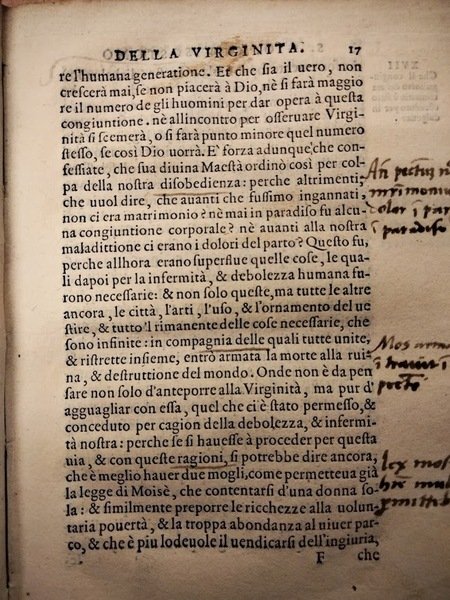 DELLA VIRGINITA. 17
re l'humana generatione. Et che sia il uero, non
crescerà mai, se non piacerà à Dio, nè si farà maggio
re il numero de gli huomini per dar opera à questa
congiuntione. nè allincontro per osseruare Virgi-
nità si scemerà, o si farà punto minore quel numero
stesso, se così Dio uorrà. E' forza adunque, che con-
fessiate, che sua diuina Maestà ordinò così per col-
pa della nostra disobedienza: perche altrimenti,
che uuol dire, che auanti che fussimo ingannati,
non ci era matrimonio? nè mai in paradiso fu alcu-
na congiuntione corporale? nè auanti alla nostra
maladittione ci erano i dolori del parto? Questo fu,
perche allhora erano superflue quelle cose, le qua-
li dapoi per la infermità, & debolezza humana fu-
rono necessarie: & non solo queste, ma tutte le altre
ancora, le città, l'arti, l'uso, & l'ornamento del ue
stire, & tutto'l rimanente delle cose necessarie, che
sono infinite: in compagnia delle quali tutte unite,
& ristrette insieme, entrò armata la morte alla rui-
na, & destruttione del mondo. Onde non è da pen
sare non solo d'anteporre alla Virginità, ma pur d'
agguagliar con essa, quel che ci è stato permesso, &
conceduto per cagion della debolezza, & infermi-
tà nostra: perche se si hauesse à proceder per questa
uia, & con queste ragioni, si potrebbe dire ancora,
che è meglio hauer due mogli, come permetteua già
la legge di Moisè, che contentarsi d'una donna so-
la: & similmente preporre le ricchezze alla uolun-
taria pouertà, & la troppa abondanza al uiuer par-
co, & che è piu lodeuole il uendicarsi dell'ingiuria,
F che
An pectus
i paradiso
Mos
Lex mos